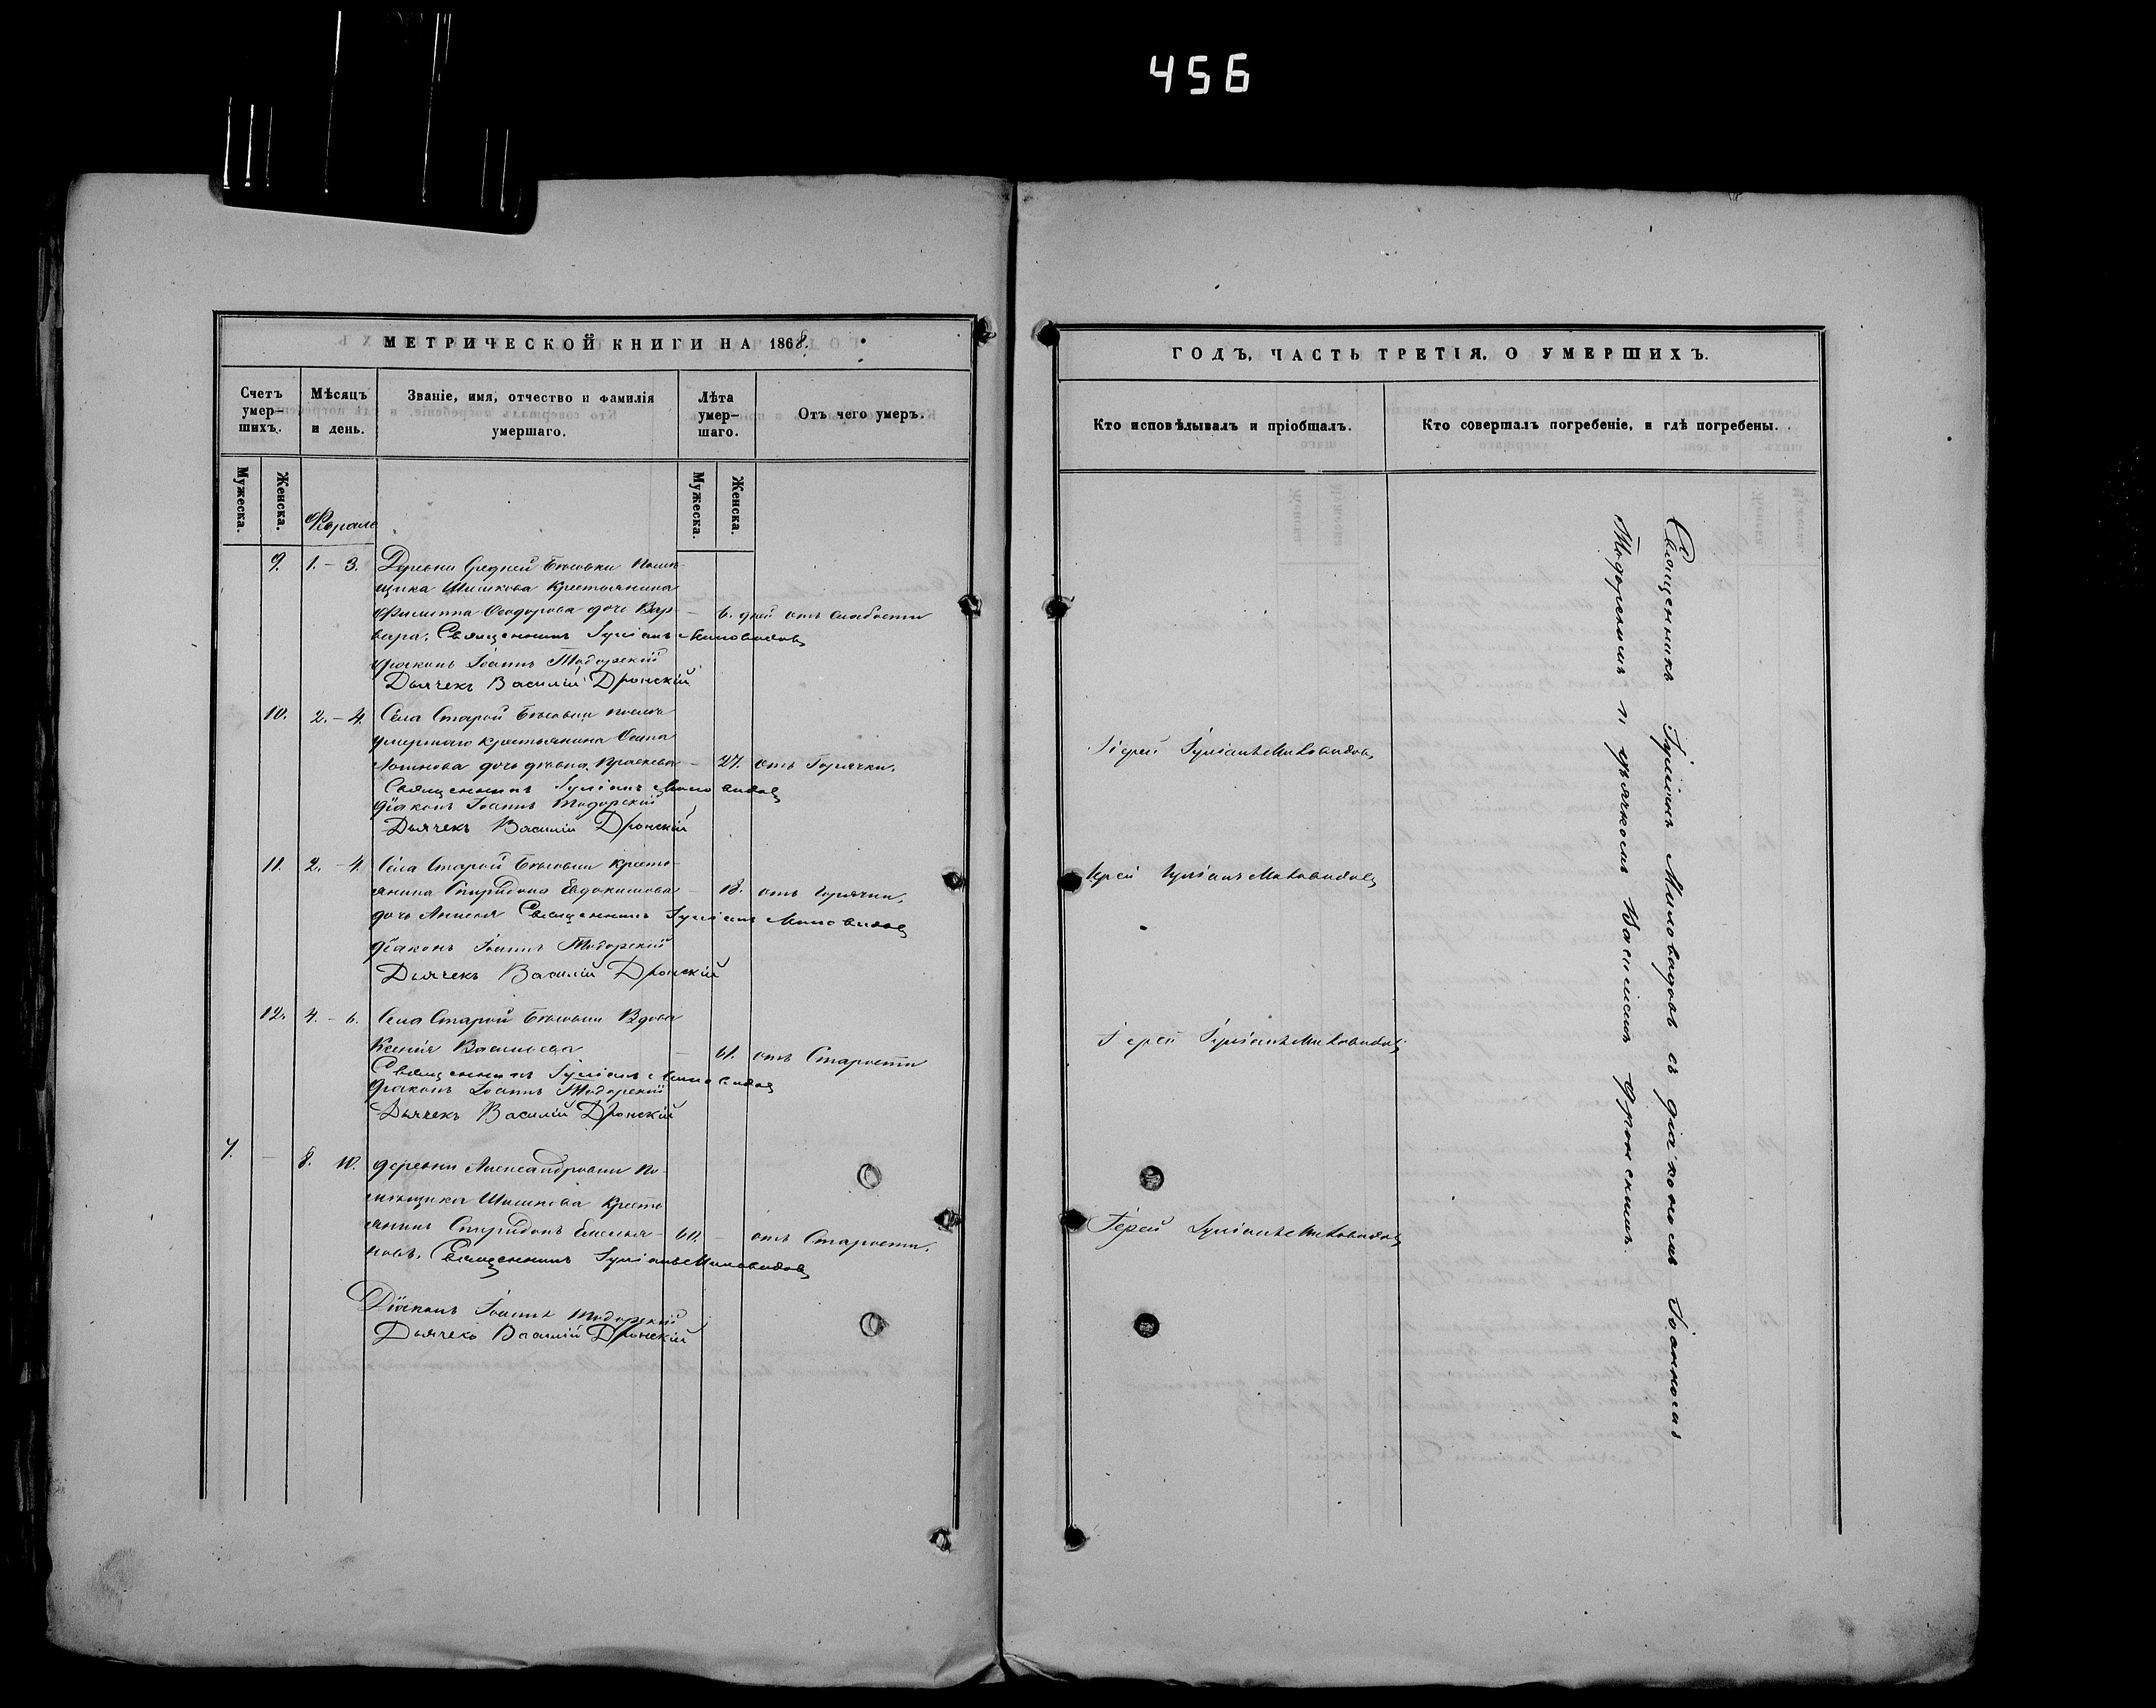 456
МЕТРИЧЕСКОЙ КНИГИ НА 1868.
Счетъ умер-шихъ.
Мѣсяцъ и день.
Званіе, имя, отчество и фамилія умершаго.
Лѣта умер-шаго.
Отъ чего умеръ.
Мужеска.
Женска.
Мужеска.
Женска.
9. 1. – 3. Деревни Средней
щика Шишкова Крестьянина
Филиппа Ѳеодорова дочь Вар- – 6. дней отъ слабости
вара. Священникъ Іуліанъ Миловидовъ
діаконъ Іоаннъ Тодорскій
Дьячекъ Василій Дронскій
10. 2. – 4. Села Старой после
умершаго крестьянина Осипа
Логинова дочь девка – 27. отъ Горячки.
Священникъ Іуліанъ Миловидовъ
діаконъ Іоаннъ Тодорскій
Дьячекъ Василій Дронскій
11. 2. – 4. Села Старой кресть-
янина Спиридона Евдокимова – 18. отъ горячки.
дочь Священникъ Іуліанъ Миловидовъ
діаконъ Іоаннъ Тодорскій
Дьячекъ Василій Дронскій
12. 4. – 6. Села Старой Вдова
Ксенія Васильева – 61. отъ Старости
Священникъ Іуліанъ Миловидовъ
діаконъ Іоаннъ Тодорскій
Дьячекъ Василій Дронскій
7. – 8. 10. деревни Александровки по-
мѣщика Шишкова Кресть
янинъ Спиридонъ Емелья- 60. – отъ Старости.
новъ. Священникъ Іуліанъ Миловидовъ
Діаконъ Іоаннъ Тодорскій
Дьячекъ Василій Дронскій
ГОДЪ, ЧАСТЬ ТРЕТІЯ, О УМЕРШИХЪ.
Кто исповѣдывалъ и пріобщалъ.
Кто совершалъ погребеніе, и гдѣ погребены.
Іерей Іуліанъ Миловидовъ
Іерей Іуліанъ Миловидовъ
Іерей Іуліанъ Миловидовъ
Іерей Іуліанъ Миловидовъ
Священникъ Іуліанъ Миловидовъ съ діакономъ Іоанномъ
Тодорскимъ и дьячкомъ Василіемъ Дронскимъ.